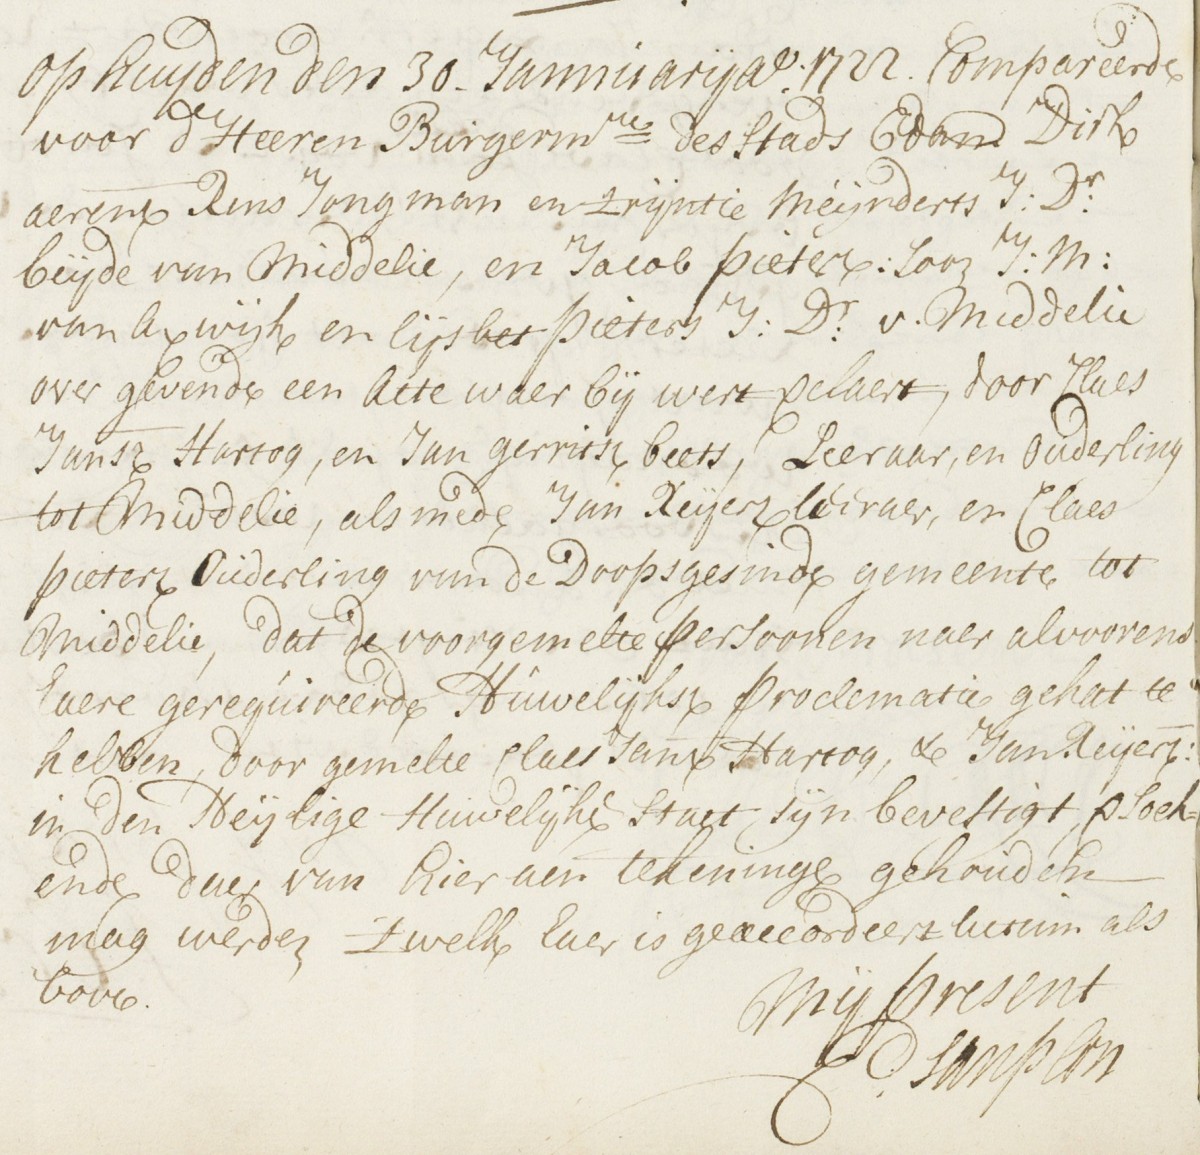 op huijden den 30. Jannuarij aº. 1722. Compareerde
voor d'Heeren Burgermre des Stads Edam Dirk
aerenz Rens Jongman en trijntie Meijnderts J: Dr.
beijde van Middelie, en Jacob pieterz: Sooz J: M:
van Axwijk en lijsbet pieters J: Dr. v. Middelie
over gevende een Acte waer bij wert verclaert, door Claes
Jansz Hartog, en Jan gerritsz beets, Leeraar, en ouderling
tot Middelie, als mede Jan Reijerz leeraer, en Claes
pieterz Ouderling van de Doopsgesinde gemeente tot
Middelie, dat de voorgemelte persoonen naer alvoorens
haere gerequireerde Huwelijksz proclematie gehat te
hebben, door gemelte Claes Janz Hartog, & Jan Reijerz:
in den Heijlige Huwelijke Staet sijn bevestigt, versoek=
ende daer van hier aen tekeninge gehouden
mag werden twelk haer is geaccordeert Actum als
boven.
Mij present
D. Sanpson